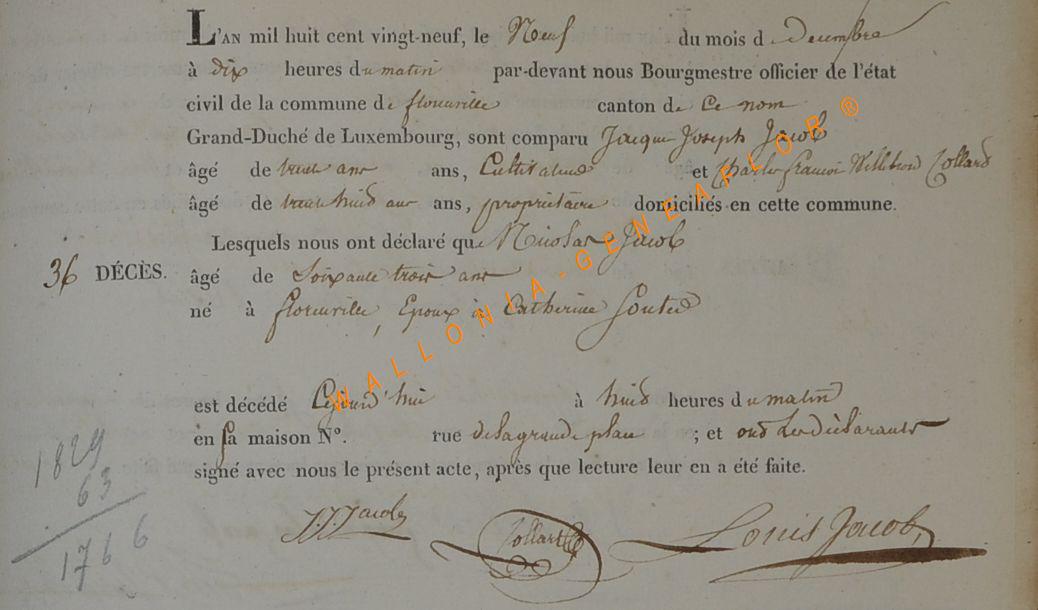 L'AN mil huit cent vingt-neuf, le Neuf du mois d decembre
à dix heures du matin par-devant nous Bourgmestre officier de l'état
civil de la commune de florenville canton de Ce nom
Grand-Duché de Luxembourg, sont comparu Jacque Joseph Jacob
âgé de trente ans ans, Cultivateur et Charles francois Willibrord Collard
âgé de trente huid ans ans, propriétaire domiciliés en cette commune.
Lesquels nous ont déclaré que Nicolas Jacob
36 DÉCÈS. âgé de Soixante trois ans
né à florenville, Epoux à Catherine
est décédé Cejourd'hui à huid heures du matin
en sa maison N°. rue delagrande place ; et ond Les déclarants
signé avec nous le présent acte, après que lecture leur en a été faite.
1829
63
1766
J.J. Jacob Collard Louis Jacob
WALLONIA-GENEAFLOR ®